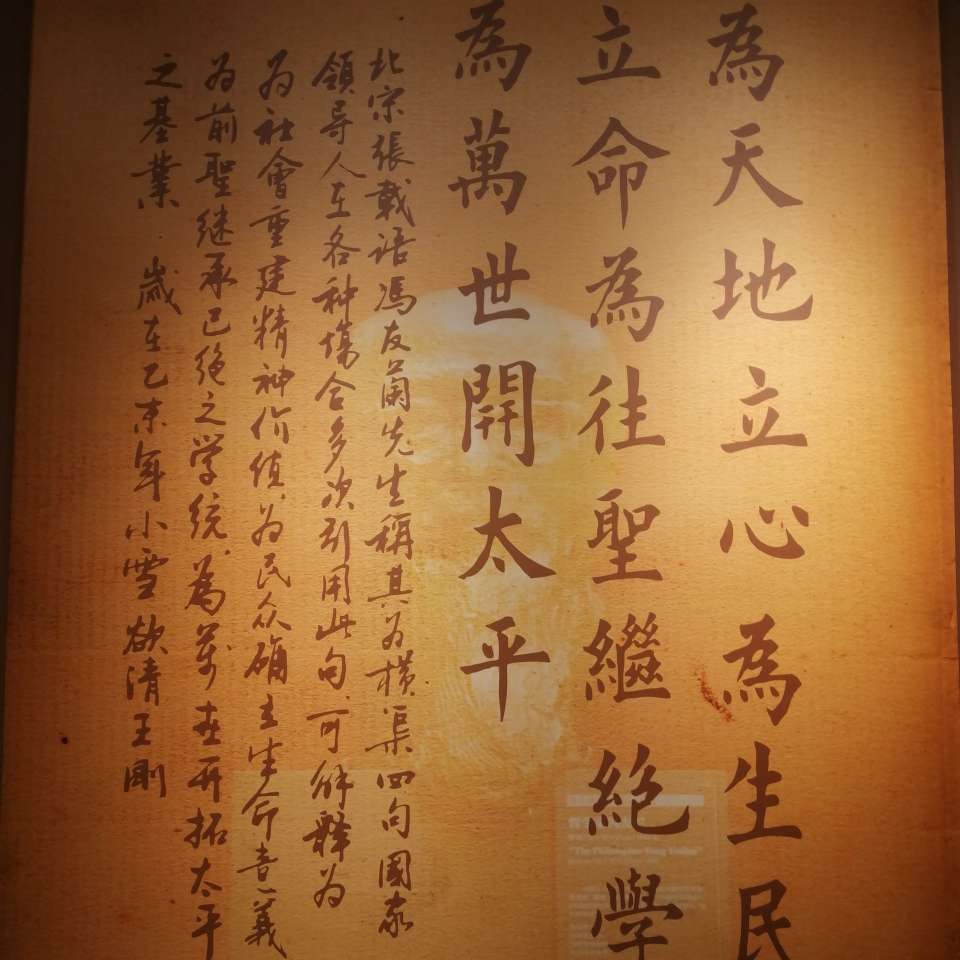 為天地立心為生民
立命為往聖繼絕學
為萬世開太平
北宋張載语馮友蘭先生稱其为横渠四句國家
領导人在各种場合多次引用此句可解释为
为社會重建精神价值为民众确立生命意義
为前聖继承已绝之学统為万世开拓太平
之基業 歲在乙未年小雪欲清王剛